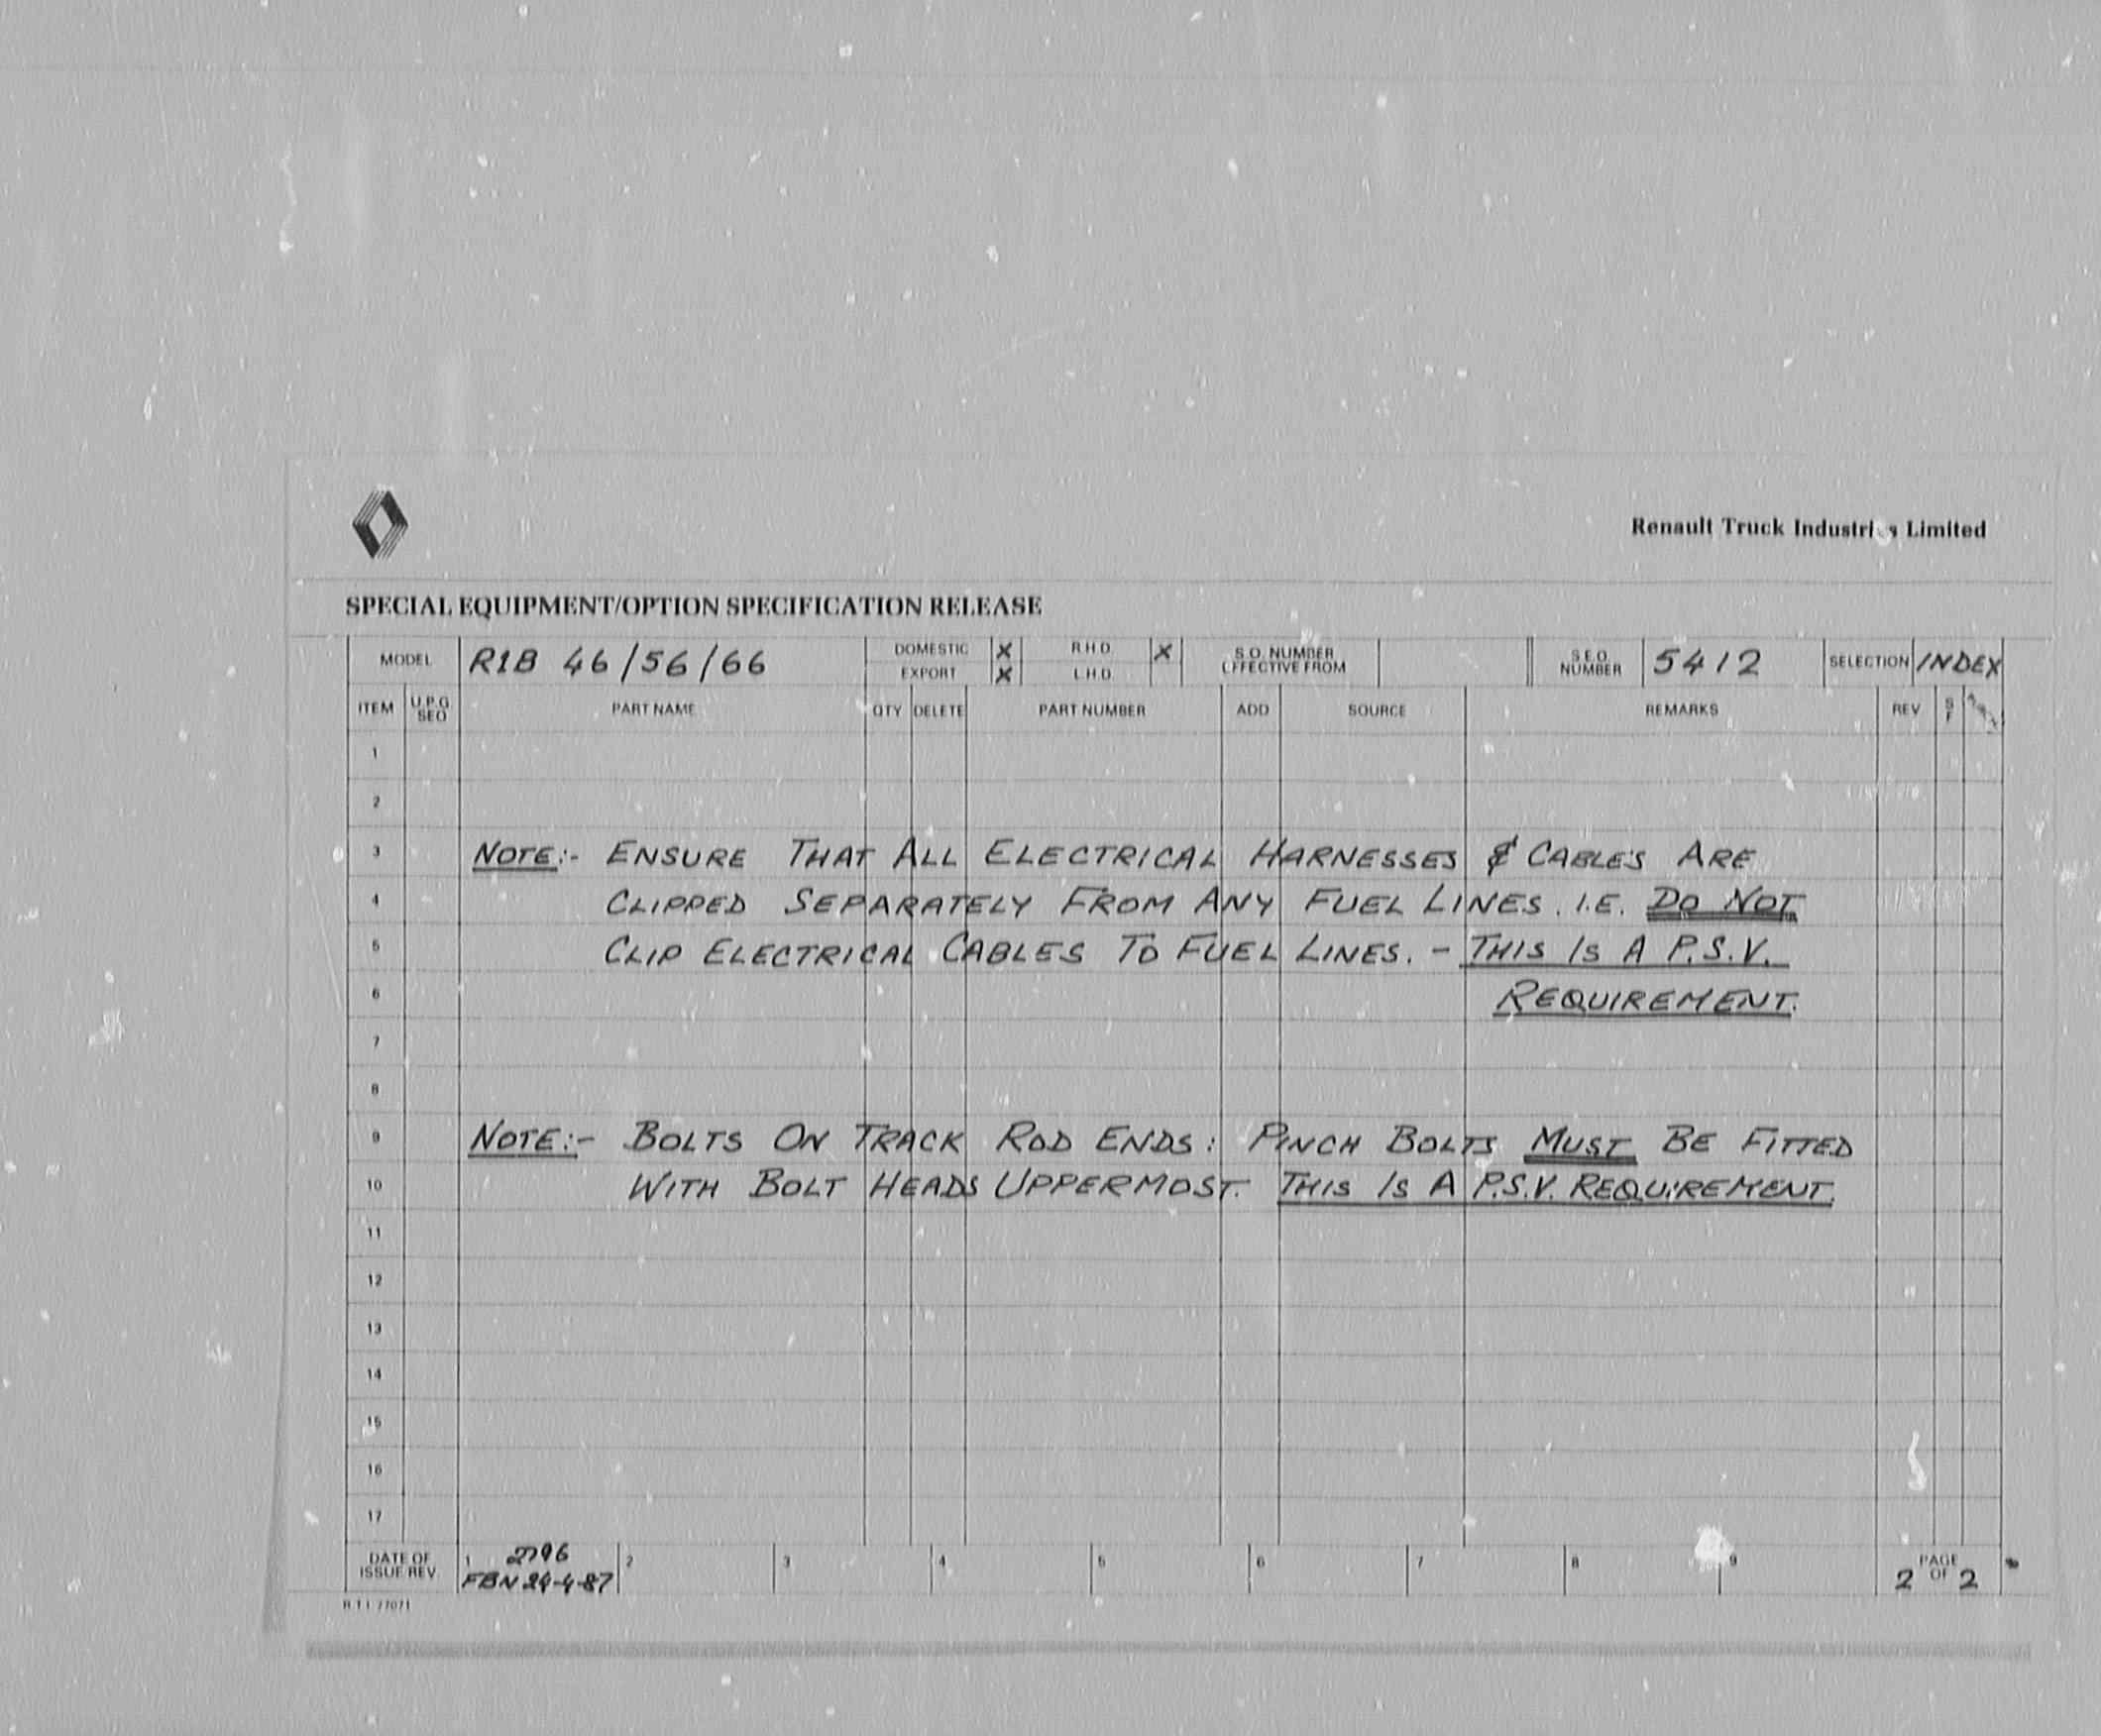 Renault Truck Industries Limited
SPECIAL EQUIPMENT/OPTION SPECIFICATION RELEASE
MODEL R1B 46/56/66 DOMESTIC X R.H.D. X S.O. NUMBER EFFECTIVE FROM S.E.O. NUMBER 5412 SELECTION INDEX
EXPORT X L.H.D.
ITEM U.P.G. SEQ PART NAME QTY DELETE PART NUMBER ADD SOURCE REMARKS REV S F
1
2
3 NOTE:- ENSURE THAT ALL ELECTRICAL HARNESSES & CABLES ARE
4 CLIPPED SEPARATELY FROM ANY FUEL LINES. I.E. DO NOT
5 CLIP ELECTRICAL CABLES TO FUEL LINES. - THIS IS A P.S.V.
6 REQUIREMENT.
7
8
9 NOTE:- BOLTS ON TRACK ROD ENDS: PINCH BOLTS MUST BE FITTED
10 WITH BOLT HEADS UPPERMOST. THIS IS A P.S.V. REQUIREMENT.
11
12
13
14
15
16
17
DATE OF ISSUE/REV 1 2796 2 3 4 5 6 7 8 9 PAGE
FBN 29-4-87 2 OF 2
R.T.I. 77071